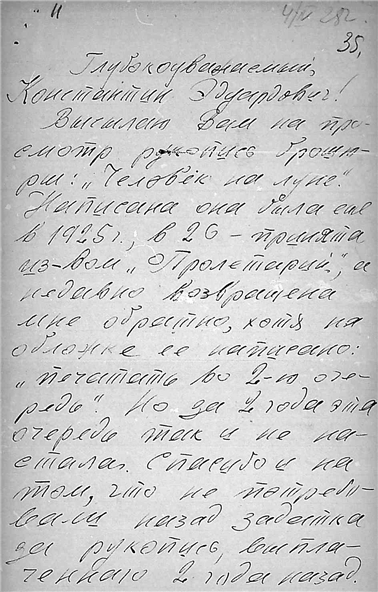 11
4/IV 28г.
35.
Глубокоуважаемый,
Константин Эдуардович!
Высылаю Вам на про-
смотр рукопись брошю-
ры: „Человек на луне".
Написана она была еще
в 1925 г., в 26 – принята
из-вом „Пролетарий", а
недавно возвращена
мне обратно, хотя на
обложке ее написано:
„печатать во 2-ю оче-
редь". Но за 2 года эта
очередь так и не на-
стала. Спасибо и на
том, что не потребо-
вали назад задатка
за рукопись, выпла-
ченнаго 2 года назад.